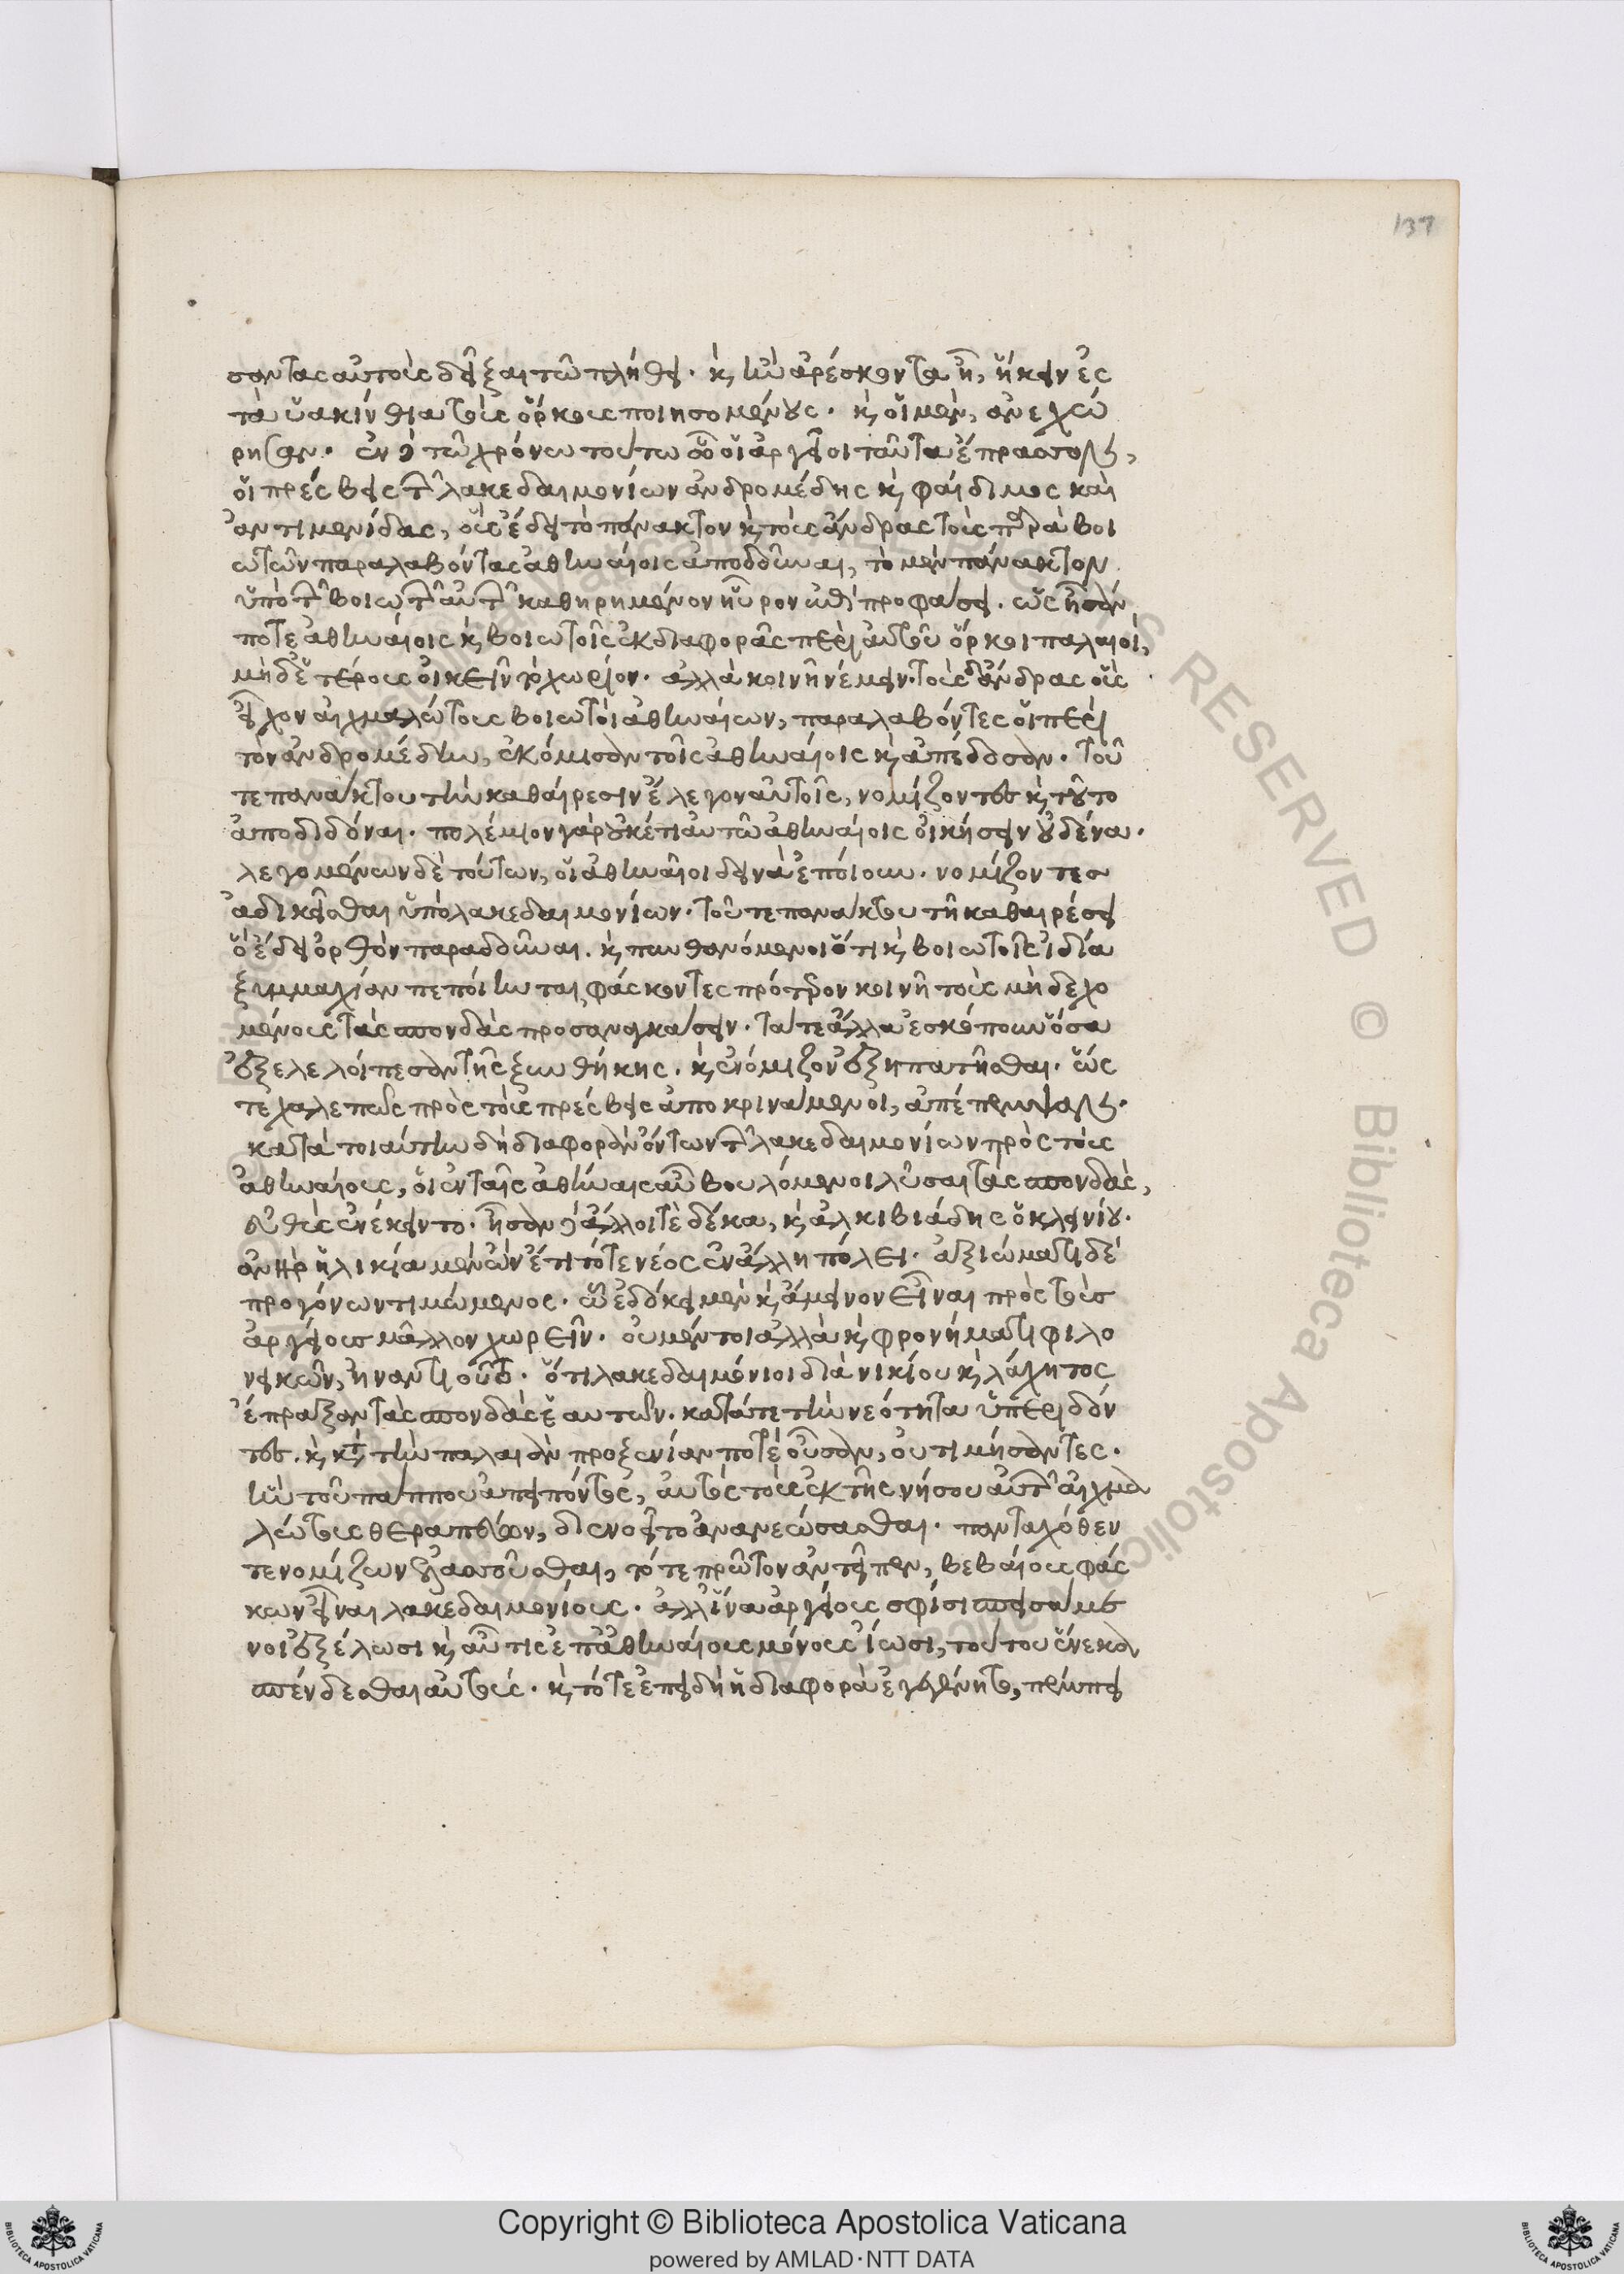 137
σαντας αὐτοὺς δεῖξαι τῷ πλήθει. καὶ ἢν ἀρέσκοντα ᾖ, ἥκειν ἐς
τὰ ὑακίνθια τοὺς ὅρκους ποιησομένους. καὶ οἱ μὲν, ἀνεχώ
ρησαν. ἐν δὲ τῷ χρόνω τούτω ᾧ οἱ ἀργεῖοι ταῦτα ἔπρασσον,
οἱ πρέσβεις τῶν λακεδαιμονίων ἀνδρομέδης καὶ φαίδιμος καὶ
ἀντιμενίδας, οὓς ἔδει τὸ πάνακτον καὶ τοὺς ἄνδρας τοὺς παρὰ βοι
ωτῶν παραλαβόντας ἀθηναίοις ἀποδοῦναι, τὸ μὲν πάνακτον
ὑπὸ τῶν βοιωτῶν αὐτῶν καθηρημένον ηὗρον ἐπὶ προφάσει. ὡς ἦσάν
ποτε ἀθηναίοις καὶ βοιωτοῖς ἐκ διαφορᾶς περὶ αὐτοῦ ὅρκοι παλαιοὶ,
μηδετέρους οἰκεῖν τὸ χωρίον. ἀλλὰ κοινῆ νέμειν. τοὺς δ' ἄνδρας οὓς
εἶχον αἰχμαλώτους βοιωτοὶ ἀθηναίων, παραλαβόντες οἱ περὶ
τὸν ἀνδρομέδην, ἐκόμισαν τοῖς ἀθηναίοις καὶ ἀπέδοσαν. τοῦ
τε πανάκτου τὴν καθαίρεσιν ἔλεγον αὐτοῖς, νομίζοντες καὶ τοῦτο
ἀποδιδόναι. πολέμιον γὰρ οὐκέτι ἐν αὐτῷ ἀθηναίοις οἰκήσειν οὐδένα.
λεγομένων δὲ τούτων, οἱ ἀθηναῖοι δεινὰ ἐποίουν. νομίζοντες
ἀδικεῖσθαι ὑπὸ λακεδαιμονίων. τοῦ τε πανάκτου τῆ καθαιρέσει
ὃ ἔδει ὀρθὸν παραδοῦναι. καὶ πυνθανόμενοι ὅτι καὶ βοιωτοῖς ἰδία
ξυμμαχίαν πεποίηνται φάσκοντες πρότερον κοινῆ τοὺς μὴ δεχο
μένους τὰς σπονδὰς προσαναγκάσειν. τά τε ἄλλα ἐσκόπουν ὅσα
ἐξελελοίπεσαν τῆς ξυνθήκης. καὶ ἐνόμιζον ἐξηπατῆσθαι. ὥς
τε χαλεπῶς πρὸς τοὺς πρέσβεις ἀποκρινάμενοι, ἀπέπεμψαν.
κατὰ τοιαύτην δὴ διαφορὰν ὄντων τῶν λακεδαιμονίων πρὸς τοὺς
ἀθηναίους, οἱ ἐν ταῖς ἀθήναις αὖ βουλόμενοι λῦσαι τὰς σπονδὰς,
εὐθὺς ἐνέκειντο. ἦσαν δὲ ἄλλοι τὲ δέκα, καὶ ἀλκιβιάδης ὁ κλεινίου.
ἀνὴρ ἡλικία μὲν ὢν ἔτι τότε νέος ὡς ἐν ἄλλη πόλει. ἀξιώματι δὲ
προγόνων τιμώμενος. ᾧ ἐδόκει μὲν καὶ ἄμεινον εἶναι πρὸς τοὺς
ἀργείους μᾶλλον χωρεῖν. οὐ μέντοι ἀλλὰ καὶ φρονήματι φιλο
νεικῶν, ἠναντιοῦτο. ὅτι λακεδαιμόνιοι διὰ νικίου καὶ λάχητος
ἔπραξαν τὰς σπονδὰς ἑαυτῶν. κατά τε τὴν νεότητα ὑπεριδόν
τες. καὶ κατὰ τὴν παλαιὰν προξενίαν ποτὲ οὖσαν, οὐ τιμήσαντες.
ἣν τοῦ πάππου ἀπειπόντος, αὐτὸς τοὺς ἐκ τῆς νήσου αὐτῶν αἰχμα
λώτους θεραπεύων, διενοεῖτο ἀνανεώσασθαι. πανταχόθεν
τε νομίζων ἐλασσοῦσθαι, τό τε πρῶτον ἀντεῖπεν, βεβαίους φάς
κων εἶναι λακεδαιμονίους. ἀλλ' ἵνα ἀργείους σφίσι σπεισάμε
νοι ἐξέλωσι καὶ αὖτις ἐπ' ἀθηναίους μόνους ἴωσι, τούτου ἕνεκα
σπένδεσθαι αὐτοὺς. καὶ τότε ἐπειδὴ ἡ διαφορὰ ἐγεγένητο, πέμπει
Copyright © Biblioteca Apostolica Vaticana
powered by AMLAD·NTT DATA